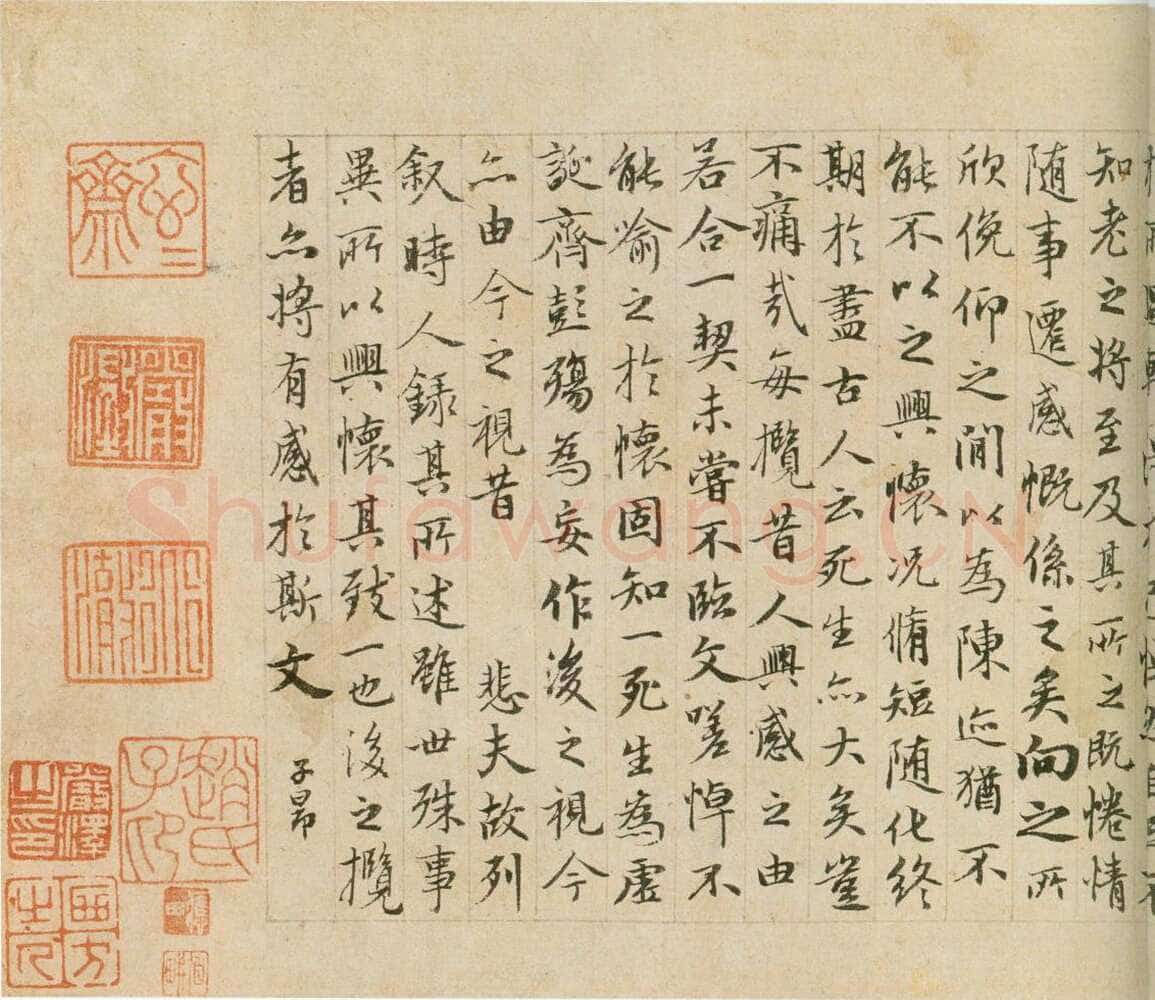 知老之將至及其所之既惓情
随事遷感慨係之矣向之所
欣俛仰之間以為陳迹猶不
能不以之興懷況脩短随化終
期於盡古人云死生亦大矣豈
不痛哉每攬昔人興感之由
若合一契未嘗不臨文嗟悼不
能喻之於懷固知一死生為虛
誕齊彭殤為妄作後之視今
亦由今之視昔 悲夫故列
叙時人錄其所述雖世殊事
異所以興懷其致一也後之攬
者亦將有感於斯文
子昂
趙氏子昂
嚴澤之印
Shufawang.CN